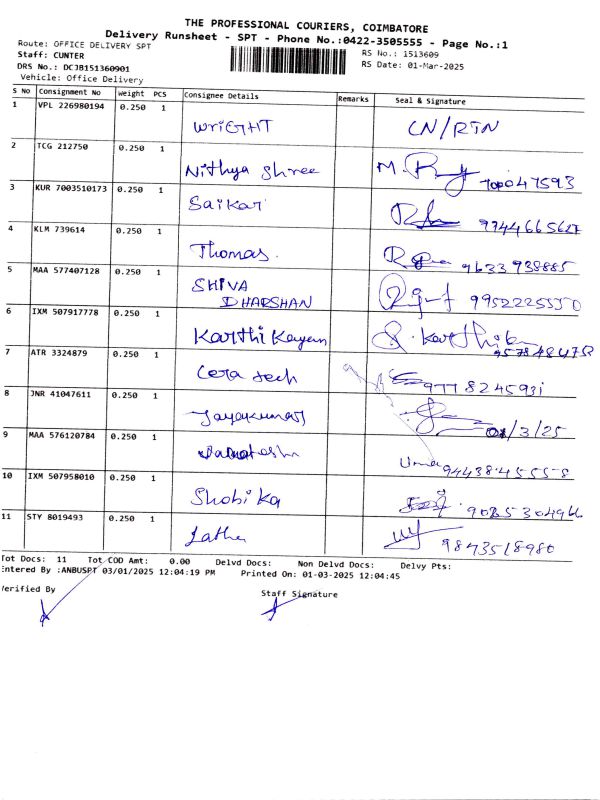 THE PROFESSIONAL COURIERS, COIMBATORE
Delivery Runsheet - SPT - Phone No.:0422-3505555 - Page No.:1
Route: OFFICE DELIVERY SPT
RS No.: 1513609
Staff: CUNTER
RS Date: 01-Mar-2025
DRS No.: DCJB151360901
Vehicle: Office Delivery
S No Consignment No Weight PCS Consignee Details Remarks Seal & Signature
1 VPL 226980194 0.250 1
WRIGHT CN/RTN
2 TCG 212750 0.250 1
Nithya Shree M.
3 KUR 7003510173 0.250 1
Saikar 9944665627
4 KLM 739614 0.250 1
Thomas. 9633938885
5 MAA 577407128 0.250 1
SHIVA
DHARSHAN 9952225550
6 IXM 507917778 0.250 1
Karthi Kayen
7 ATR 3324879 0.250 1
Cera tech
8 JNR 41047611 0.250 1
Jayakumar 01/3/25
9 MAA 576120784 0.250 1
Uma 9443845558
10 IXM 507958010 0.250 1
Shobika
11 STY 8019493 0.250 1
Latha 9843518980
Tot Docs: 11 Tot COD Amt: 0.00 Delvd Docs: Non Delvd Docs: Delvy Pts:
Entered By :ANBUSPT 03/01/2025 12:04:19 PM Printed On: 01-03-2025 12:04:45
Verified By Staff Signature